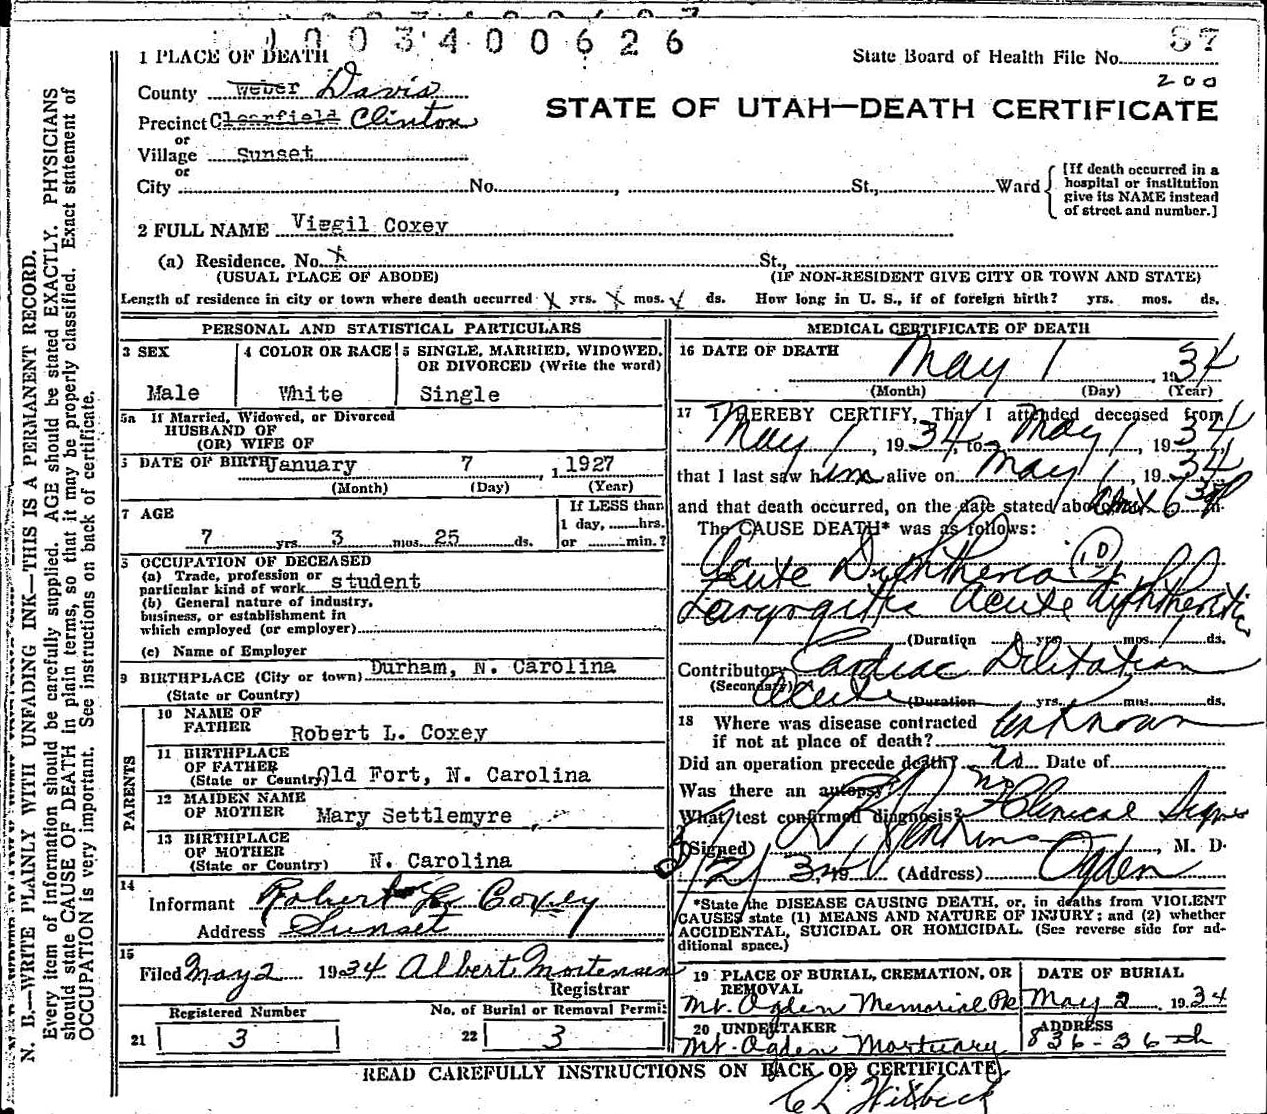 1003400626
1 PLACE OF DEATH
State Board of Health File No. 57
200
County Weber Davis
STATE OF UTAH—DEATH CERTIFICATE
Precinct Clearfield Clinton
or
Village Sunset
or
City No. , St., Ward
[If death occurred in a hospital or institution give its NAME instead of street and number.]
2 FULL NAME Virgil Coxey
(a) Residence. No. x St.,
(USUAL PLACE OF ABODE) (IF NON-RESIDENT GIVE CITY OR TOWN AND STATE)
Length of residence in city or town where death occurred x yrs. x mos. x ds. How long in U. S., if of foreign birth? yrs. mos. ds.
PERSONAL AND STATISTICAL PARTICULARS
3 SEX
Male
4 COLOR OR RACE
White
5 SINGLE, MARRIED, WIDOWED,
OR DIVORCED (Write the word)
Single
5a If Married, Widowed, or Divorced
HUSBAND OF
(OR) WIFE OF
DATE OF BIRTH January 7, 1927
(Month) (Day) (Year)
7 AGE
7 yrs. 3 mos. 25 ds.
If LESS than
1 day, hrs.
or min.?
OCCUPATION OF DECEASED
(a) Trade, profession or
particular kind of work student
(b) General nature of industry,
business, or establishment in
which employed (or employer)
(c) Name of Employer
9 BIRTHPLACE (City or town) Durham, N. Carolina
(State or Country)
PARENTS
10 NAME OF
FATHER Robert L. Coxey
11 BIRTHPLACE
OF FATHER
(State or Country) Old Fort, N. Carolina
12 MAIDEN NAME
OF MOTHER Mary Settlemyre
13 BIRTHPLACE
OF MOTHER
(State or Country) N. Carolina
14
Informant Robert L. Coxey
Address Sunset
15
Filed May 2 1934 Albert Mortensen
Registrar
Registered Number
21 3
No. of Burial or Removal Permit
22 3
MEDICAL CERTIFICATE OF DEATH
16 DATE OF DEATH
May 1 1934
(Month) (Day) (Year)
17 I HEREBY CERTIFY, That I attended deceased from
May 1, 1934, to May 1, 1934
that I last saw him alive on May 1, 1934
and that death occurred, on the date stated above, at 6 30 P m.
The CAUSE DEATH* was as follows:
Acute Diphtheria
Laryngitis acute diphtheritic
(Duration yrs. mos. 1 ds.
Contributory Cardiac Dilitation
(Secondary) Acute
(Duration yrs. mos. ds.
18 Where was disease contracted
if not at place of death? Unknown
Did an operation precede death? no Date of
Was there an autopsy? no
What test confirmed diagnosis? Clinical Signs
(Signed) Jenkins, M. D.
5/2/34, 19 (Address) Ogden
*State the DISEASE CAUSING DEATH, or, in deaths from VIOLENT
CAUSES state (1) MEANS AND NATURE OF INJURY; and (2) whether
ACCIDENTAL, SUICIDAL OR HOMICIDAL. (See reverse side for ad-
ditional space.)
19 PLACE OF BURIAL, CREMATION, OR
REMOVAL
Mt. Ogden Memorial Pk
DATE OF BURIAL
May 2 1934
20 UNDERTAKER
Mt. Ogden Mortuary
ADDRESS
836-26th
READ CAREFULLY INSTRUCTIONS ON BACK OF CERTIFICATE
N. B.—WRITE PLAINLY WITH UNFADING INK—THIS IS A PERMANENT RECORD.
Every item of information should be carefully supplied. AGE should be stated EXACTLY. PHYSICIANS
should state CAUSE OF DEATH in plain terms, so that it may be properly classified. Exact statement of
OCCUPATION is very important. See instructions on back of certificate.